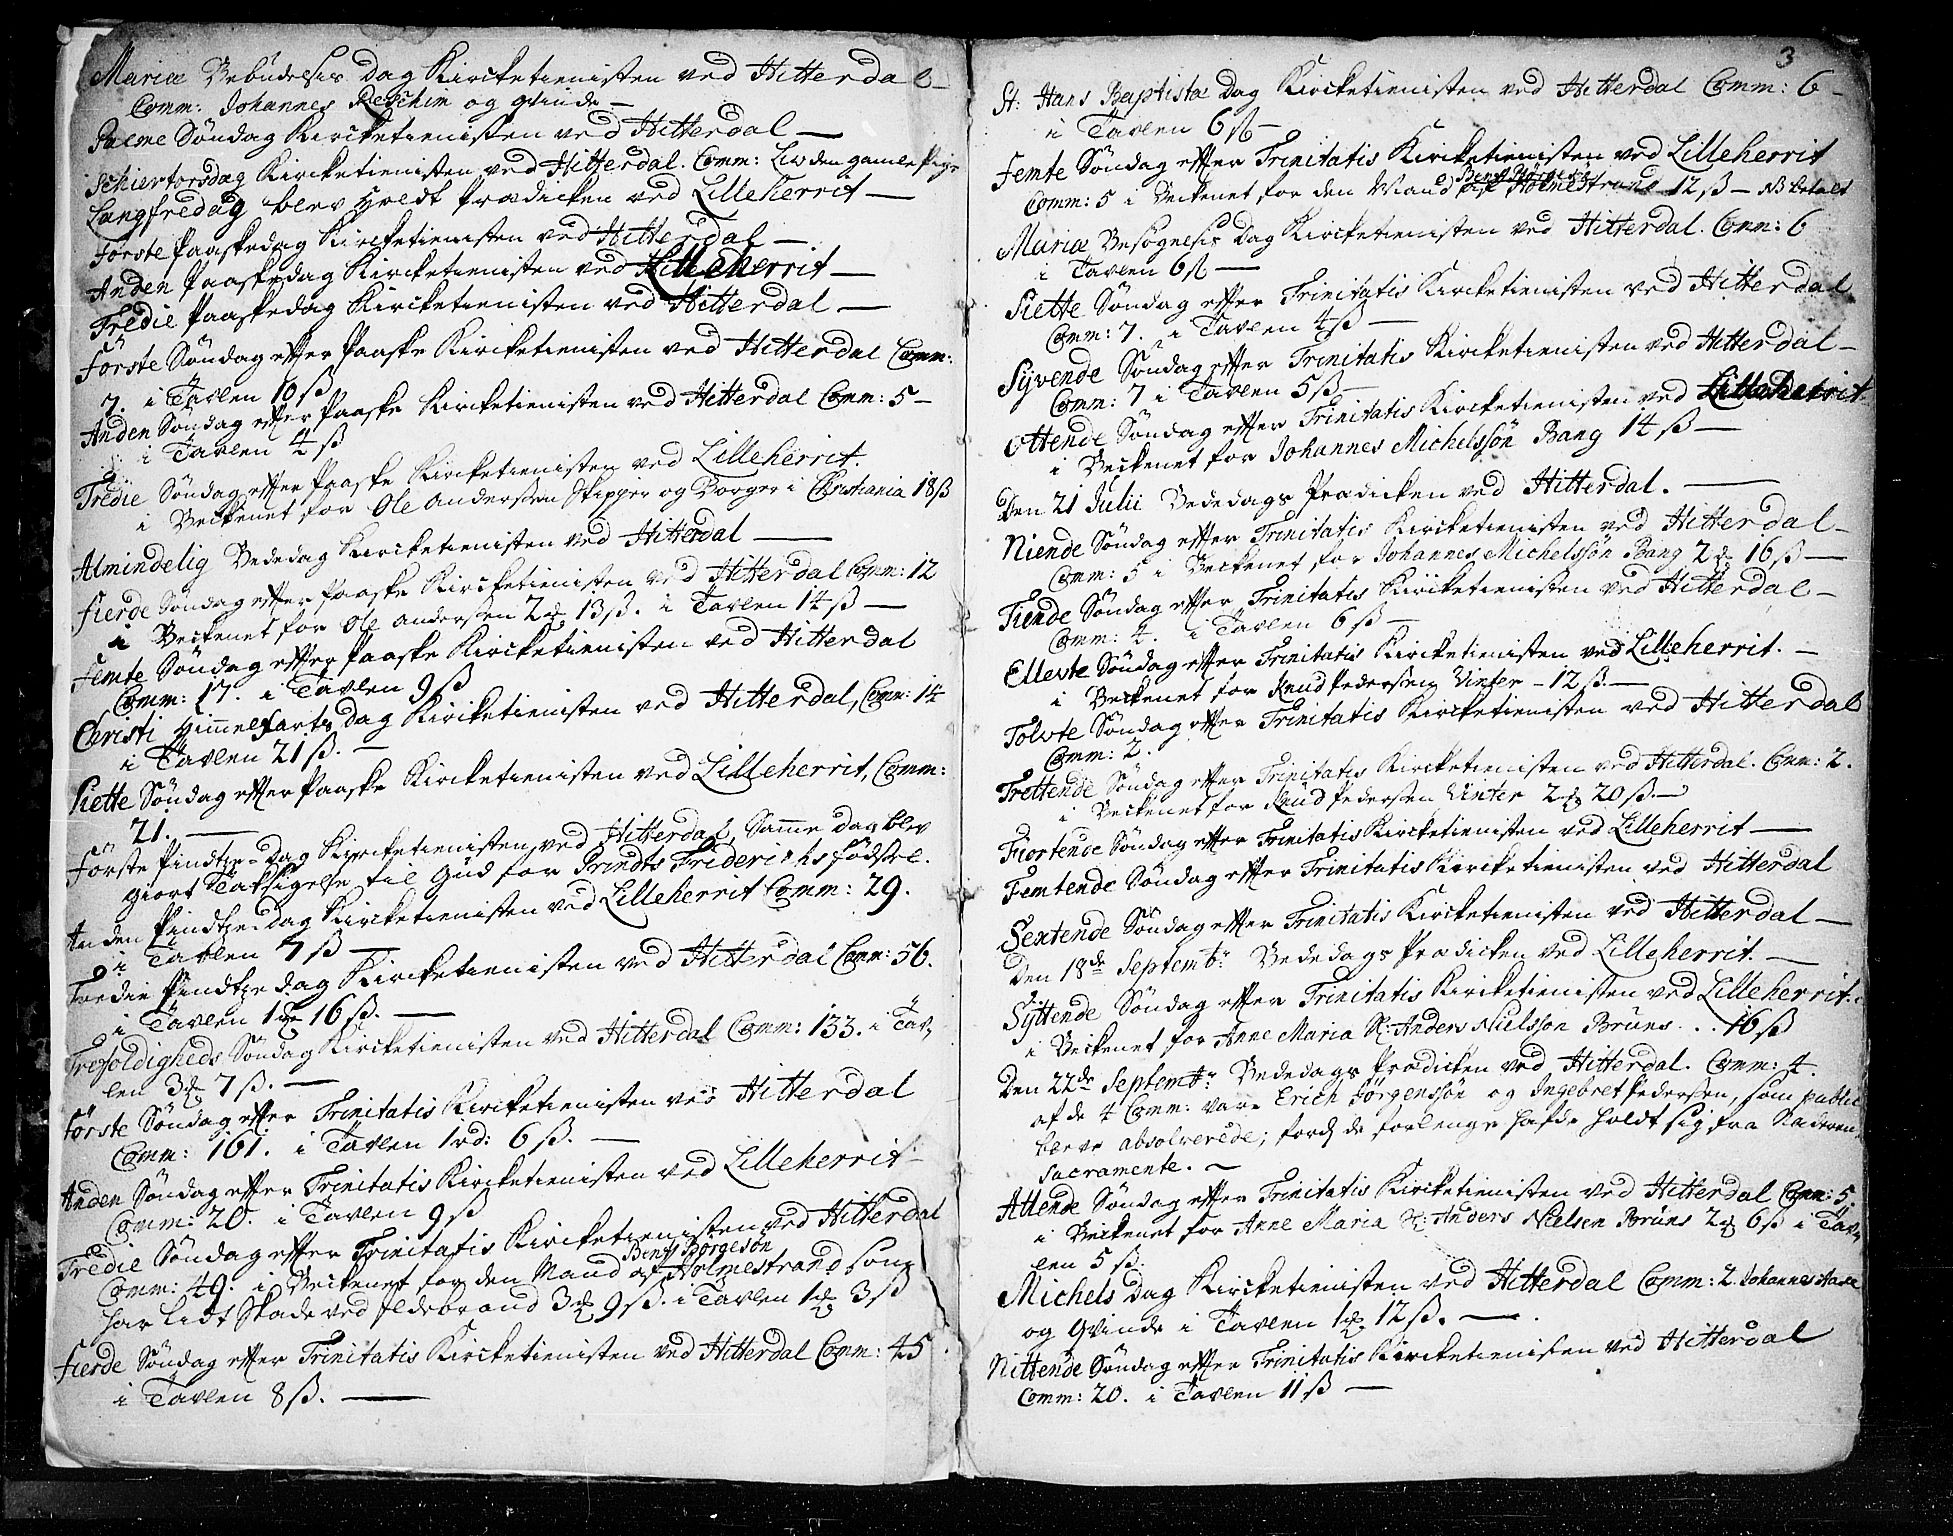 Mariæ Bebudelsis dag Kircketienisten ved Hitterdal –
Comm: Johannes Peschim og qvinde –
Palme Söndag Kircketienisten ved Hitterdal —
Schiertorsdag Kircketienisten ved Hitterdal. Comm: Liv den gamle Pige
Langfredag blev holdt Prædicken ved Lilleherrit —
Förste Paaskedag Kircketienisten ved Hitterdal —
Anden Paaskedag Kircketienisten ved Lilleherrit —
Tredie Paaskedag Kircketienisten ved Hitterdal —
Förste Söndag effter Paaske Kircketienisten ved Hitterdal Comm:
7. i Tavlen 10 ß
Anden Söndag effter Paaske Kircketienisten ved Hitterdal Comm: 5 –
i Tavlen 4 ß
Tredie Söndag effter Paaske Kircketienisten ved Lilleherrit.
i Beckenet for Ole Anderssen Skipper og Borger i Christiania 18 ß
Almindelig Bededag Kircketienisten ved Hitterdal —
Fierde Söndag effter Paaske Kircketienisten ved Hitterdal Comm: 12
i Beckenet for Ole Anderssen 2 13 ß. i Tavlen 14 ß —
Femte Söndag effter Paaske Kircketienisten ved Hitterdal
Comm: 17. i Tavlen 9 ß
Christi Himmelfarts dag Kircketienisten ved Hitterdal, Comm: 14
i Tavlen 21 ß. —
Siette Söndag effter Paaske Kircketienisten ved Lilleherrit, Comm:
21. —
Förste Pindtze-dag Kircketienisten ved Hitterdal, Samme dag blev
giort Taksigelse til Gud for Prindts Friderichs födsel.
Anden Pindtze-dag Kircketienisten ved Lilleherrit Comm: 29.
i Tavlen 7 ß —
Tredie Pindtze dag Kircketienisten ved Hitterdal Comm: 56.
i Tavlen 1 16 ß. —
Trefoldigheds Söndag Kircketienisten ved Hitterdal Comm: 133. i Tav-
len 3 7 ß. —
Förste Söndag effter Trinitatis Kircketienisten ved Hitterdal
Comm: 161. i Tavlen 1 rd: 6 ß. —
Anden Söndag effter Trinitatis Kircketienisten ved Lilleherrit –
Comm: 20. i Tavlen 9 ß
Tredie Söndag effter Trinitatis Kircketienisten ved Hitterdal
Bent Börgesön
Comm: 49. i Beckenet for den Mand af Holmestrand som
har lidt Skade ved Ildebrand 3 9 ß. i Tavlen 1 3 ß
Fierde Söndag effter Trinitatis Kircketienisten ved Hitterdal Comm: 45
i Tavlen 8 ß. —
3
St: Hans Baptistæ Dag Kircketienisten ved Hitterdal Comm: 6 –
i Tavlen 6 ß –
Femte Söndag effter Trinitatis Kircketienisten ved Lilleherrit
Comm: 5 i Beckenet for den Mand af Holmestrand 12 ß – NB betalt
Mariæ Besögelsis Dag Kircketienisten ved Hitterdal. Comm: 6
i Tavlen 6 ß —
Siette Söndag effter Trinitatis Kircketienisten ved Hitterdal
Comm: 7. i Tavlen 4 ß —
Syvende Söndag effter Trinitatis Kircketienisten ved Hitterdal –
Comm: 7 i Tavlen 5 ß –
Ottende Söndag effter Trinitatis Kircketienisten ved Lilleherrit.
i Beckenet for Johannes Michelssön Bang 14 ß —
Den 21 Julii Bededags Prædicken ved Hitterdal. —
Niende Söndag effter Trinitatis Kircketienisten ved Hitterdal –
Comm: 5 i Beckenet for Johannes Michelssön Bang 2 16 ß —
Tiende Söndag effter Trinitatis Kircketienisten ved Hitterdal –
Comm: 4. i Tavlen 6 ß –
Ellevte Söndag effter Trinitatis Kircketienisten ved Lilleherrit. –
i Beckenet for Knud Pederssen Vinter – 12 ß. —
Tolvte Söndag effter Trinitatis Kircketienisten ved Hitterdal
Comm: 2.
Trettende Söndag effter Trinitatis Kircketienisten ved Hitterdal. Comm: 2.
i Beckenet for Knud Pederssen Vinter 2 20 ß. —
Fiortende Söndag effter Trinitatis Kircketienisten ved Lilleherrit —
Femtende Söndag effter Trinitatis Kircketienisten ved Hitterdal
Sextende Söndag effter Trinitatis Kircketienisten ved Hitterdal —
Den 18de Septembr: Bededags Prædicken ved Lilleherrit. —
Syttende Söndag effter Trinitatis Kircketienisten ved Lilleherrit.
i Beckenet for Anne Maria Sl: Anders Nielssön Bruns . . . 16 ß
Den 22de Septembr: Bededags Prædicken ved Hitterdal. Comm: 4.
af de 4 Comm: vare Erich Jörgenssön og Ingebret Pederssen, som publice
bleve absolverede; fordj de forlenge hafde holdt sig fra Nadverens
Sacramente. —
Attende Söndag effter Trinitatis Kircketienisten ved Hitterdal Comm: 5,
i Beckenet for Anne Maria Sl: Anders Nielsen Bruns 2 6 ß i Tav-
len 5 ß.
Michels Dag Kircketienisten ved Hitterdal Comm: 2. Johannes
og Qvinde i Tavlen 1 12 ß. —
Nittende Söndag effter Trinitatis Kircketienisten ved Hitterdal
Comm: 20. i Tavlen 11 ß —